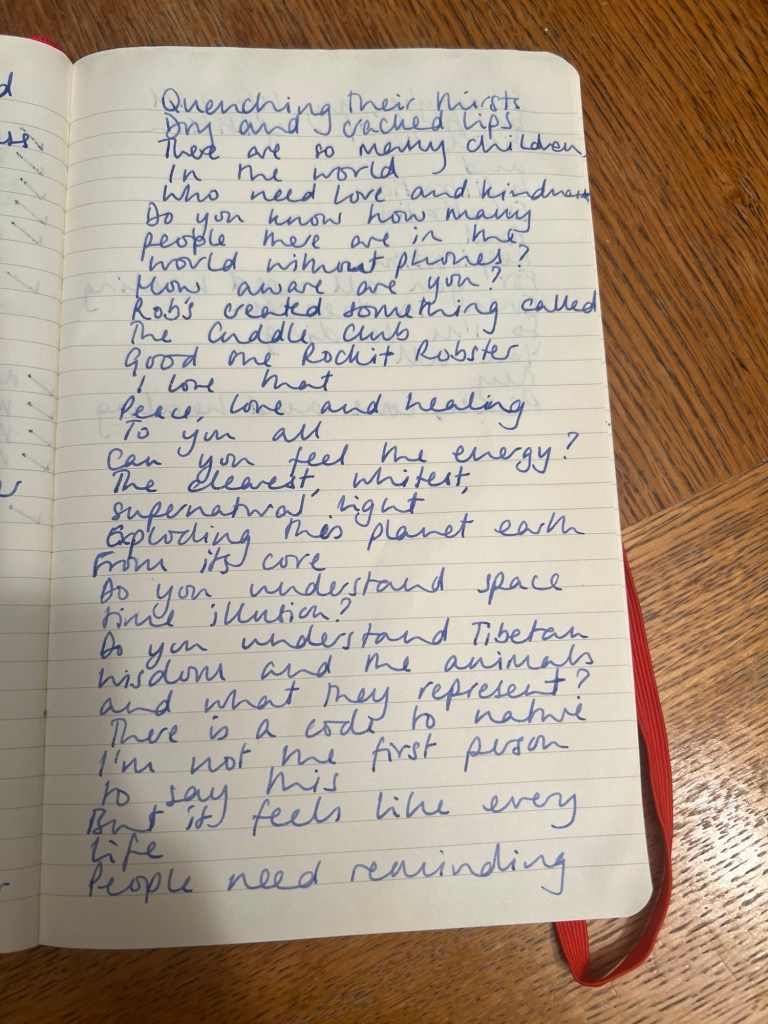 Quenching their thirsts
Dry and cracked lips
There are so many children
In the world
Who need love and kindness
Do you know how many
people there are in the
world without phones?
How aware are you?
Rob's created something called
The Cuddle Club
Good one Rockit Robster
I love that
Peace, love and healing
To you all
Can you feel the energy?
The clearest, whitest,
supernatural light
Exploding this planet earth
From its core
Do you understand space
time illusion?
Do you understand Tibetan
wisdom and the animals
and what they represent?
There is a code to nature
I'm not the first person
to say this
But it feels like every
life
People need reminding